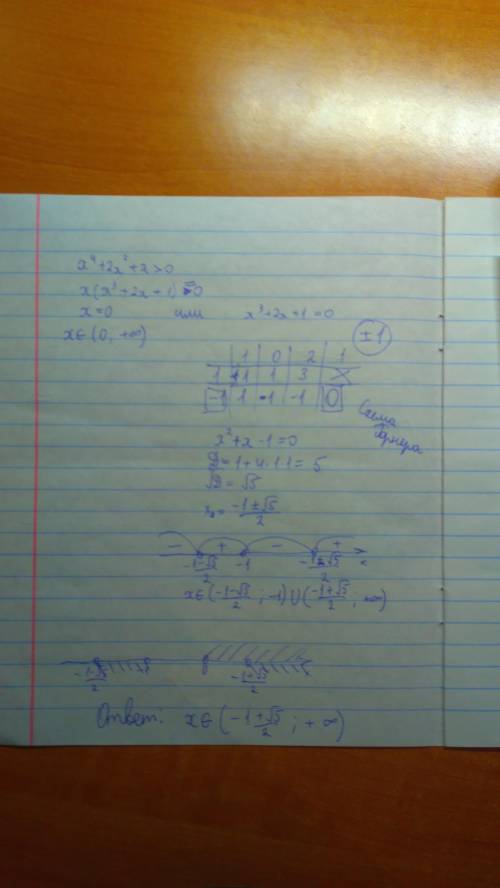 x⁴+2x²+x>0
x(x³+2x+1)=0
x=0 или x³+2x+1=0
x∈(0, +∞) ±1
1 0 2 1
1 1 1 3 X
-1 1 -1 -1 0
Схема Горнера
x²+x-1=0
D=1+4·1·1=5
√D=√5
x₂=(-1±√5)/2
- + - +
(-1-√5)/2 -1 (-1+√5)/2 x
x∈((-1-√5)/2; -1)∪((-1+√5)/2; +∞)
(-1-√5)/2 (-1+√5)/2
Ответ: x∈((-1+√5)/2; +∞)